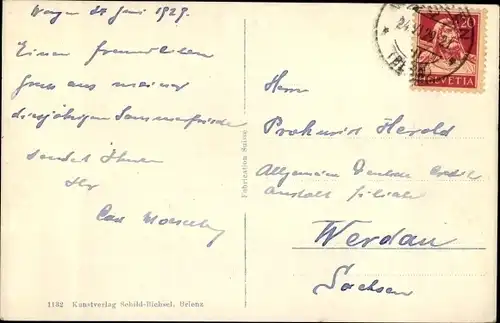 24. Juni 1929.
Einen freundlichen
Gruss aus meiner
diesjährigen Sommerfrische
sendet Ihnen
Ihr
Carl
1132 Kunstverlag Schild-Bichsel, Brienz
Fabrication Suisse
20
HELVETIA
Herrn
Prokurist Herold
Allgemeine Deutsche Credit
anstalt Filiale
Werdau
Sachsen